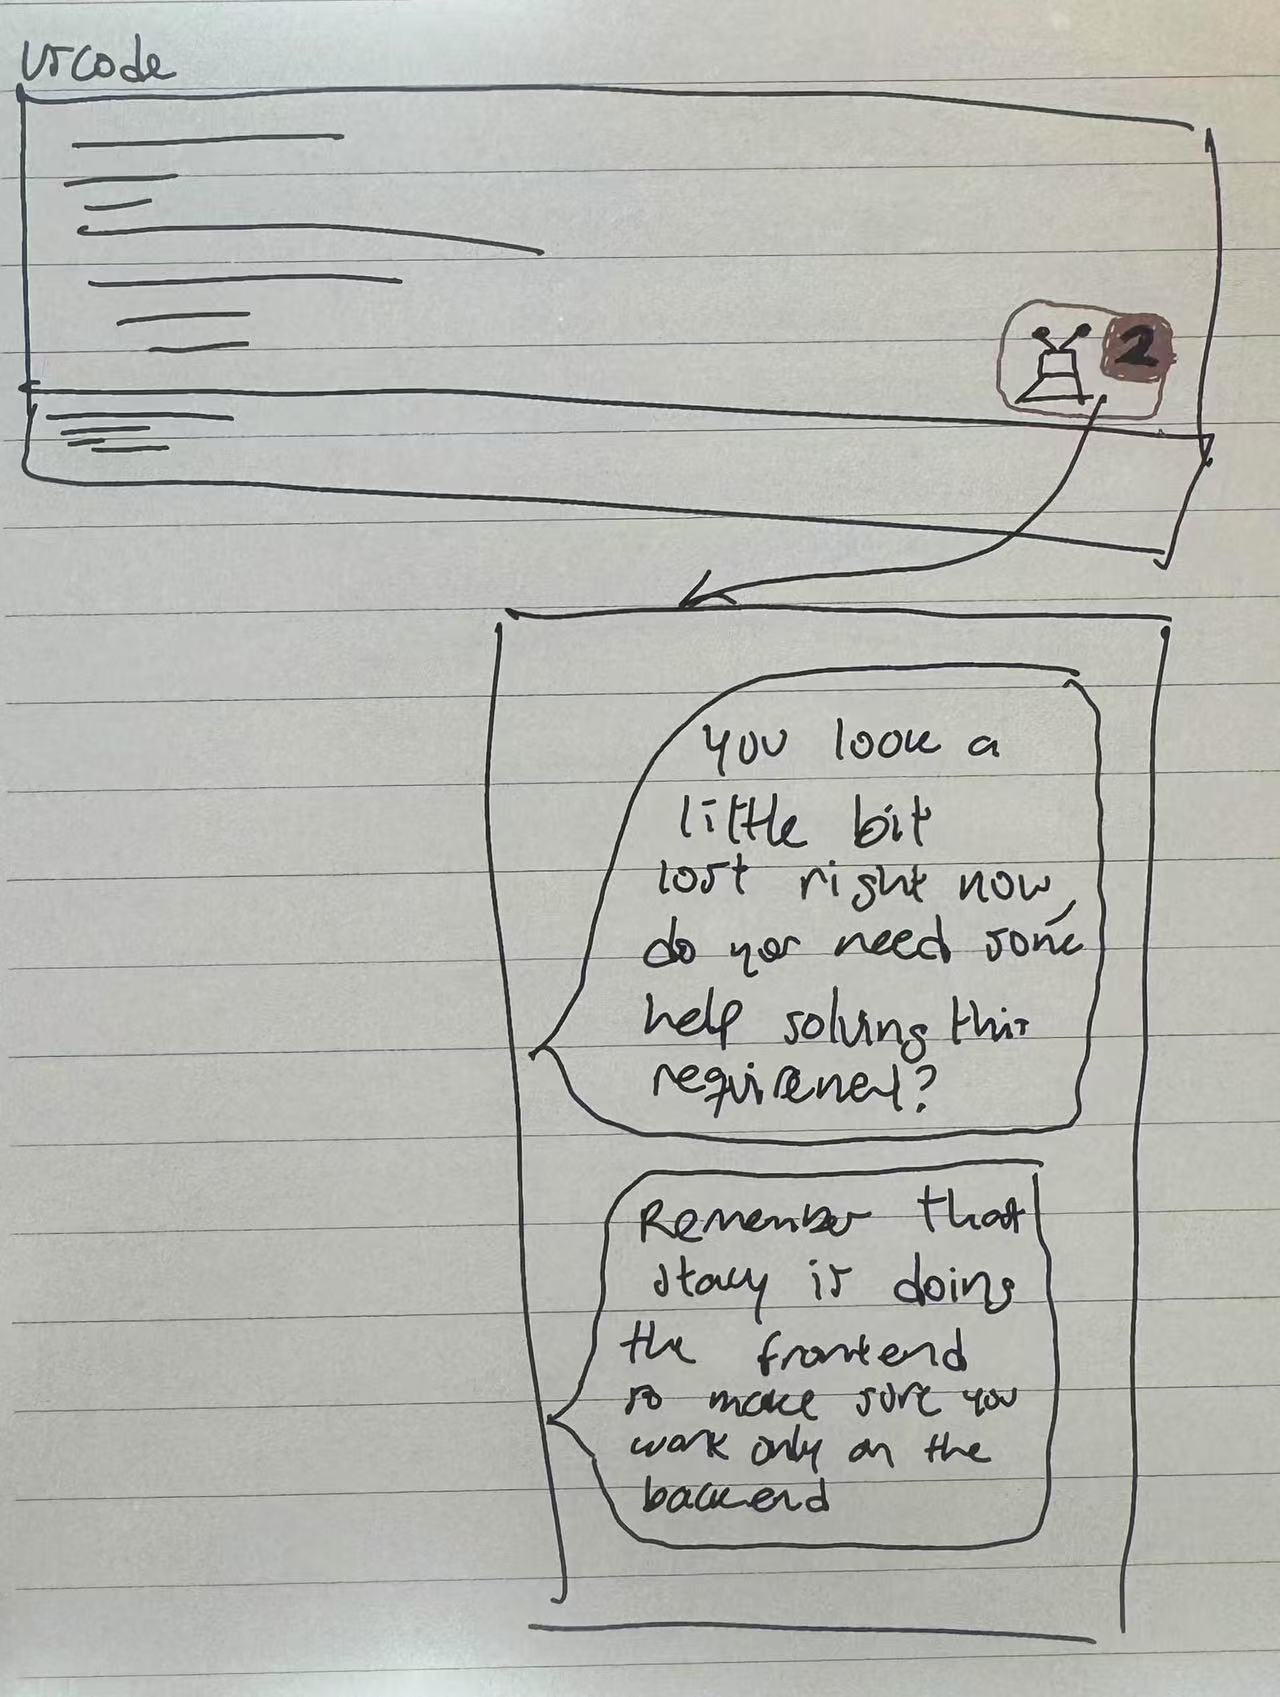 vscode
2
you look a
little bit
lost right now,
do you need some
help solving this
requirement?
Remember that
stacy is doing
the frontend
so make sure you
work only on the
backend